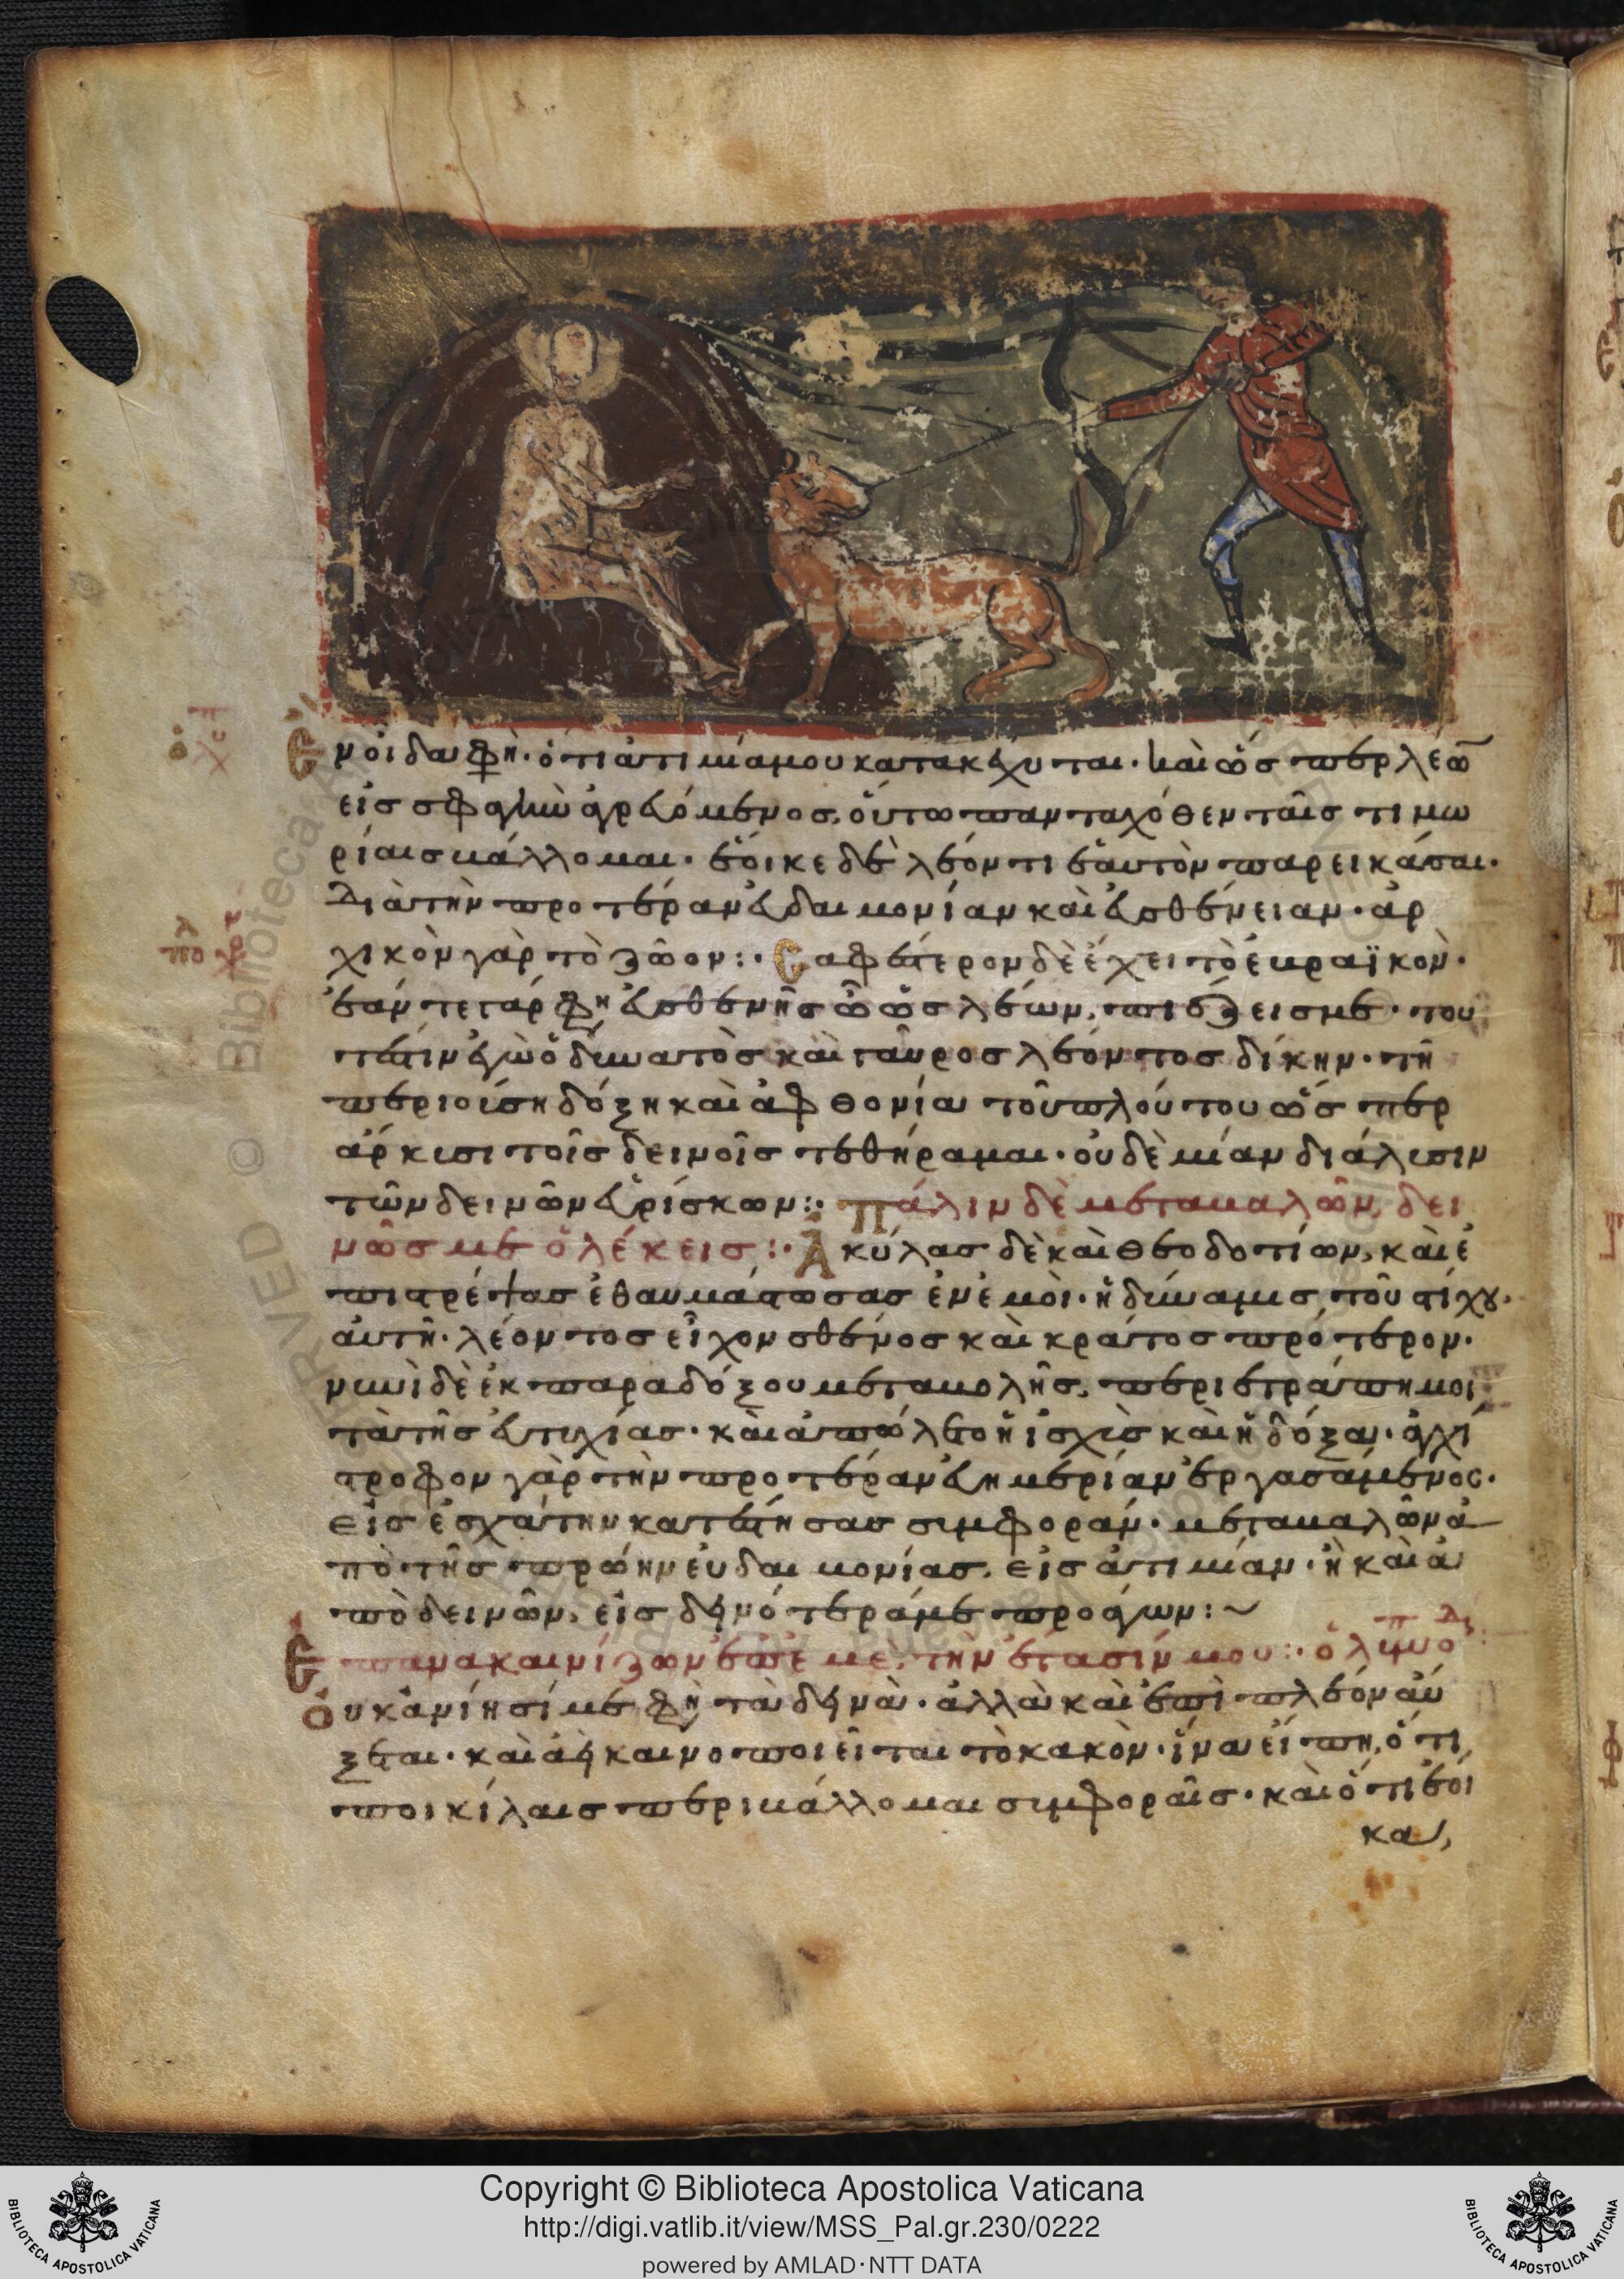 μοι δαψιλὴ· ὅτι ἀτιμία μου κατακέχυται· καὶ ὥσπερ λέων
εἰς σφαγὴν ἀγρευόμενος, οὕτω πανταχόθεν ταῖς τιμω
ρίαις βάλλομαι· ἔοικε δὲ λέοντι ἑαυτὸν παρεικάσαι·
διὰ τὴν προτέραν εὐδαιμονίαν καὶ εὐσθένειαν· ἀρ
χικὸν γὰρ τὸ ζῶον:· Σαφέστερον δὲ ἔχει τὸ ἑβραϊκὸν·
πάλιν ἐγὼ ὁ δυνατὸς καὶ γαῦρος λέοντος δίκην· τῆ
περιούση δόξη καὶ ἀφθονία τοῦ πλούτου ὥσπερ
ἄρκυσι τοῖς δεινοῖς τεθήραμαι· οὐδεμίαν διάλυσιν
τῶν δεινῶν εὑρίσκων:· πάλιν δὲ μεταβαλῶν, δει
νῶς με ὀλέκεις:· Ἀκύλας δὲ καὶ Θεοδοτίων, καὶ ἐ
πιστρέψας ἐθαυμάστωσας ἐν ἐμοὶ· ἡ δύναμις τοῦ στίχου
αὕτη· λέοντος εἶχον σθένος καὶ κράτος πρότερον·
νυνὶ δὲ ἐκ παραδόξου μεταβολῆς, περιετράπη μοι
τὰ τῆς εὐτυχίας· καὶ ἀπώλετο ἡ ἰσχὺς καὶ ἡ δόξα· ἀγχί
στροφον γὰρ τὴν προτέραν εὐημερίαν ἐργασάμενος·
εἰς ἐσχάτην κατέστησας συμφοράν· μεταβαλῶν ἀ
πὸ τῆς πρώην εὐδαιμονίας, εἰς ἀτιμίαν· ἢ καὶ ἀ
πὸ δεινῶν, εἰς δεινότερά με προάγων:~
Ἐπανακαινίζων ἐπ' ἐμὲ, τὴν ἔτασίν μου:·
Οὐκ ἀνίησί με φη τὰ δεινὰ· ἀλλὰ καὶ ἐπὶ πλέον αὔ
ξεται· καὶ ἀεὶ καινοποιεῖται τὸ κακὸν· ἵνα εἴπη, ὅτι
ποικίλαις περιβάλλομαι συμφοραῖς· καὶ ὅτι ἐοί
κα,
Copyright © Biblioteca Apostolica Vaticana
http://digi.vatlib.it/view/MSS_Pal.gr.230/0222
powered by AMLAD·NTT DATA
BIBLIOTECA APOSTOLICA VATICANA
BIBLIOTECA APOSTOLICA VATICANA